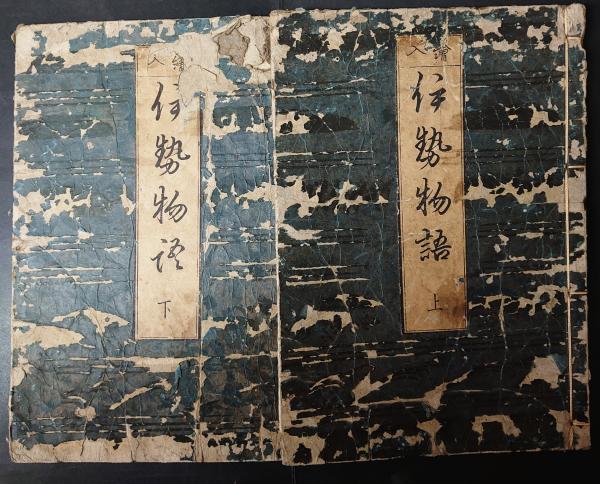 繪入
伊勢物語
上
繪入
伊勢物語
下